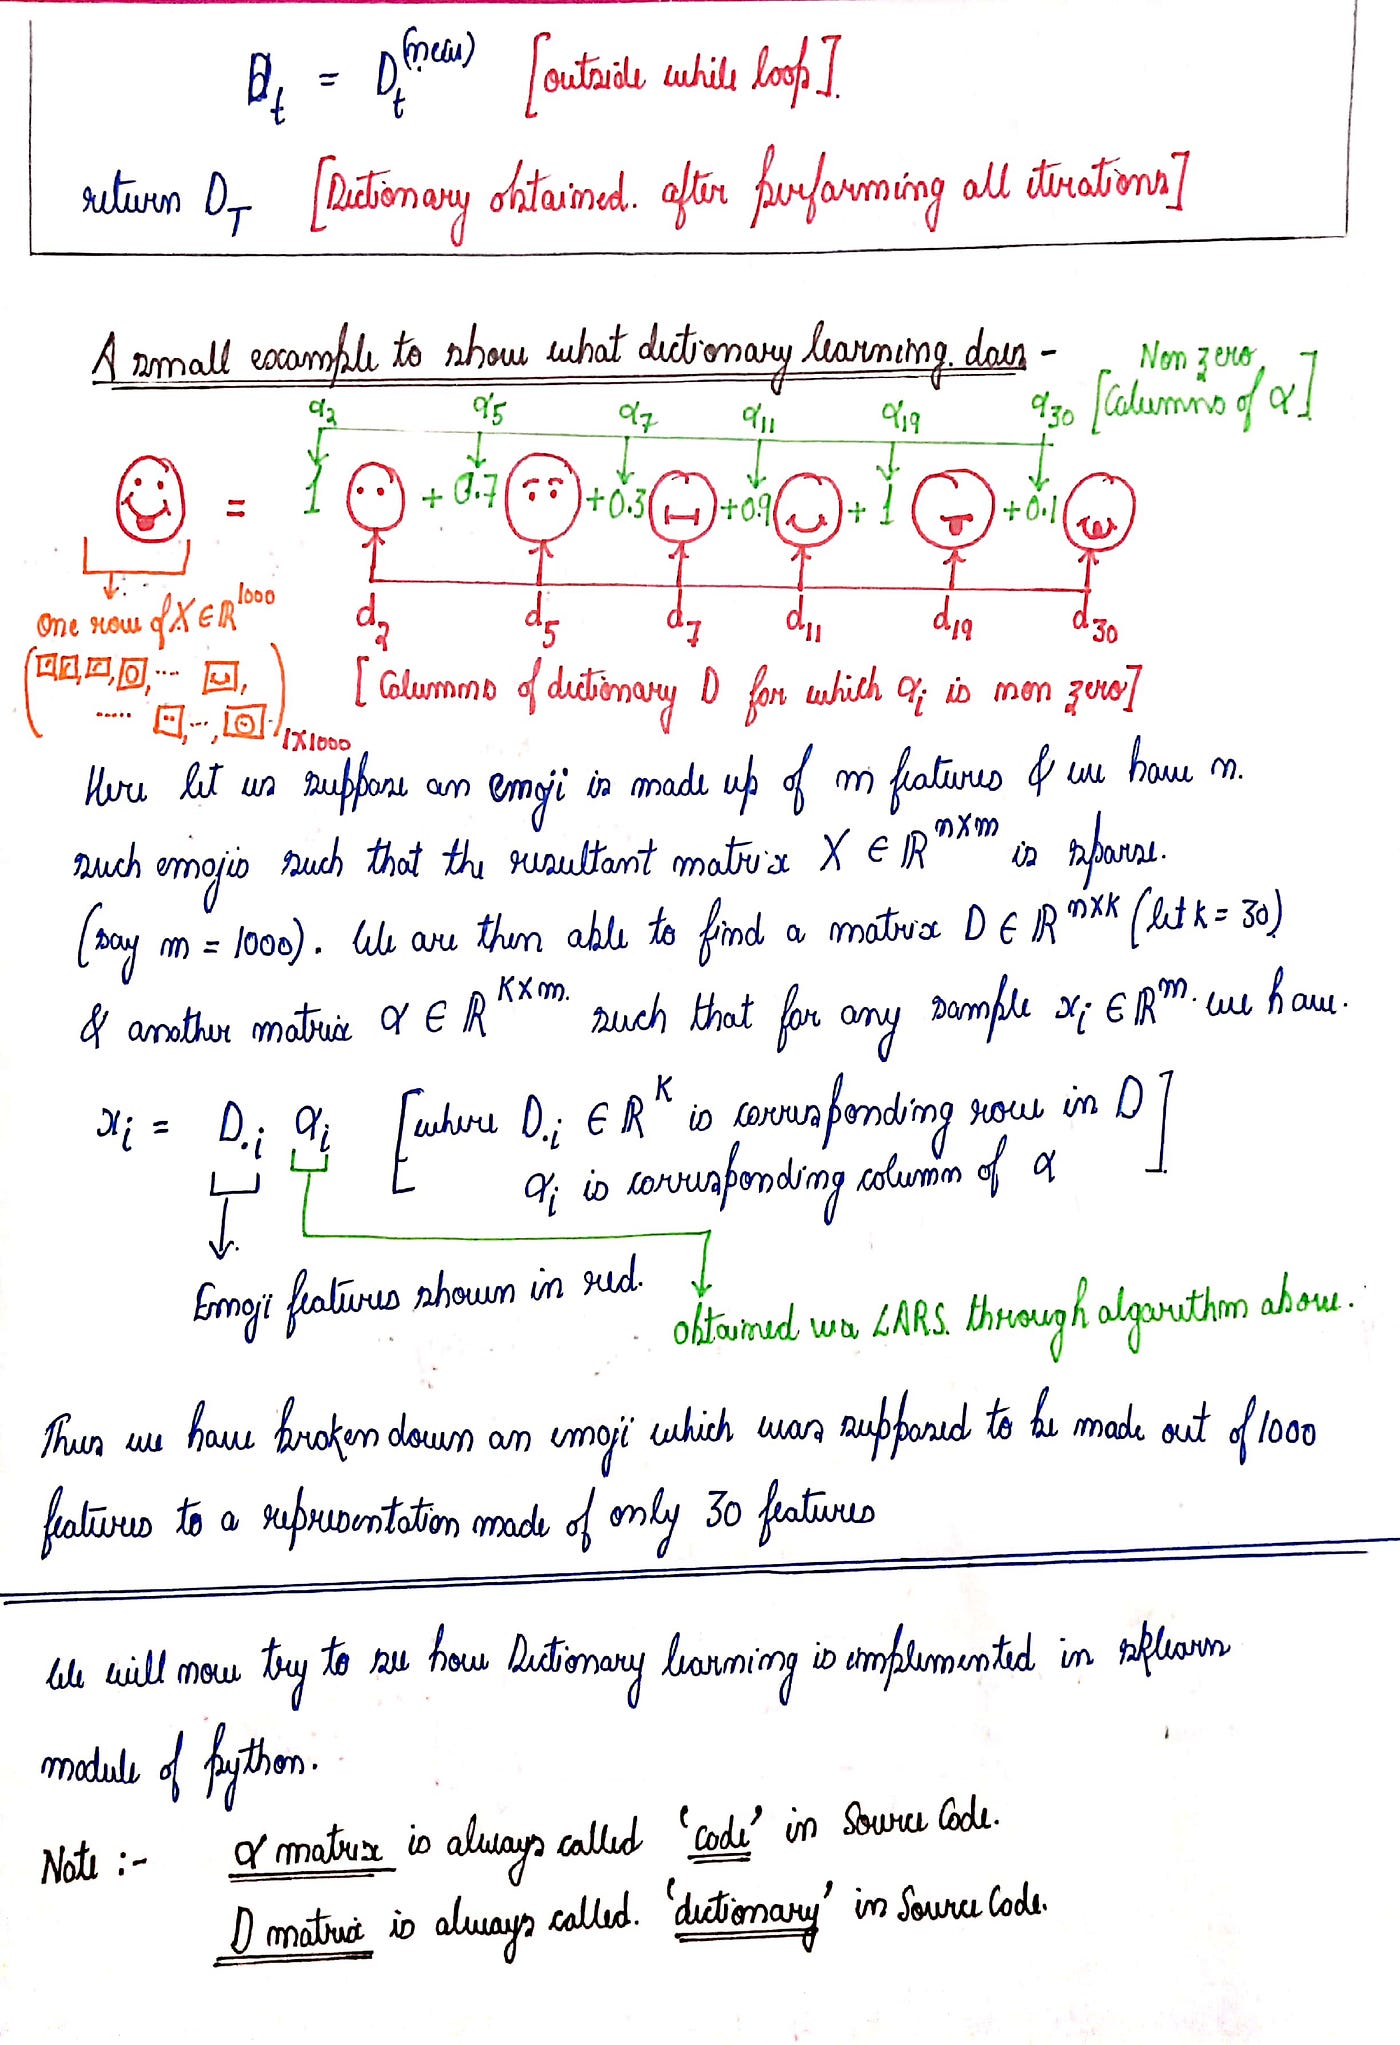 D_t = D_t^(new) [outside while loop].
return D_T [Dictionary obtained. after performing all iterations]
A small example to show what dictionary learning. does -
Non zero
[Columns of α]
α_2 α_5 α_7 α_11 α_19 α_30
= 1 + 0.7 + 0.3 + 0.9 + 1 + 0.1
One row of X ∈ R^1000
d_2 d_5 d_7 d_11 d_19 d_30
( , , , , .... , ..... , .., )_1X1000
[Columns of dictionary D for which α_i is non zero]
Here let us suppose an emoji is made up of m features & we have n.
such emojis such that the resultant matrix X ∈ R^nXm is sparse.
(say m = 1000). We are then able to find a matrix D ∈ R^nXK (let k = 30)
& another matrix α ∈ R^KXm. such that for any sample x_i ∈ R^m. we have.
x_i = D._i α_i [where D._i ∈ R^K is corresponding row in D
α_i is corresponding column of α]
Emoji features shown in red.
obtained via LARS. through algorithm above.
Thus we have broken down an emoji which was supposed to be made out of 1000
features to a representation made of only 30 features
We will now try to see how Dictionary learning is implemented in sklearn
module of python.
Note :- α matrix is always called 'code' in Source Code.
D matrix is always called. 'dictionary' in Source Code.